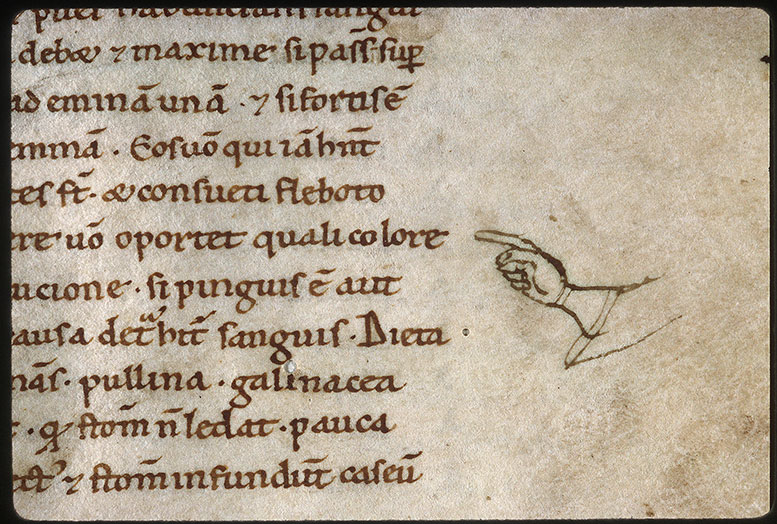 debæ ⁊ maxime si pass̄. sup̱
ad eminā unā · ⁊ si fortis ē
mmā · Eos uō qui iā hn̄t
tes st̄· æ consueti fleboto
ere uō oportet quali colore
ucione · si pinguis ē aut
ausa det̾ hit̄ sanguis · Dieta
nās · pullina · galinacea
stom̄ n̄ ledat · pauca
⁊ stom̄ infundūt caseū